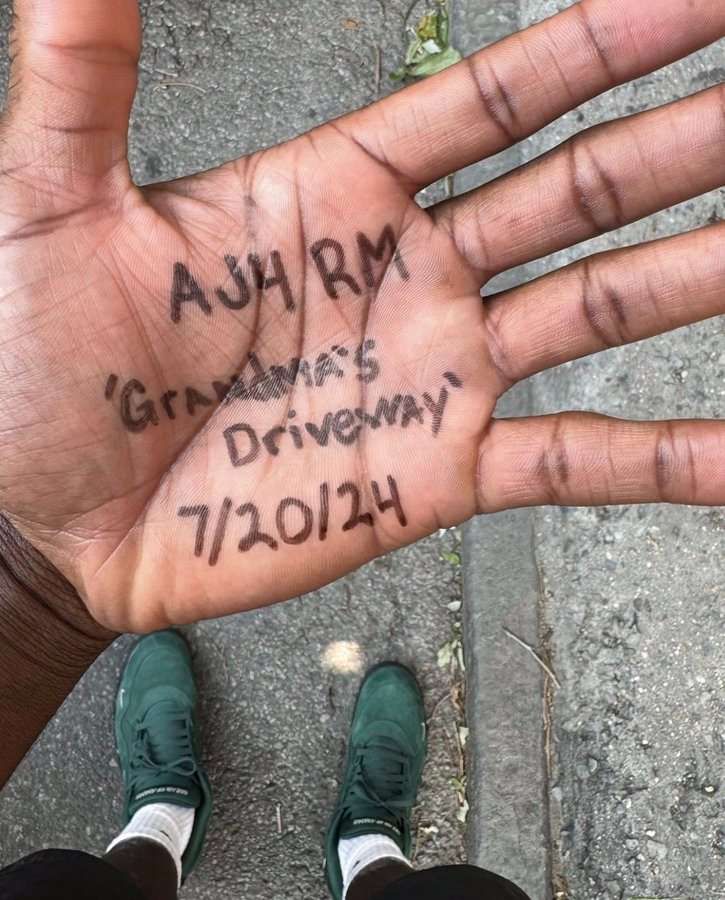 AJ4 RM
'Grandma's
Driveway'
7/20/24